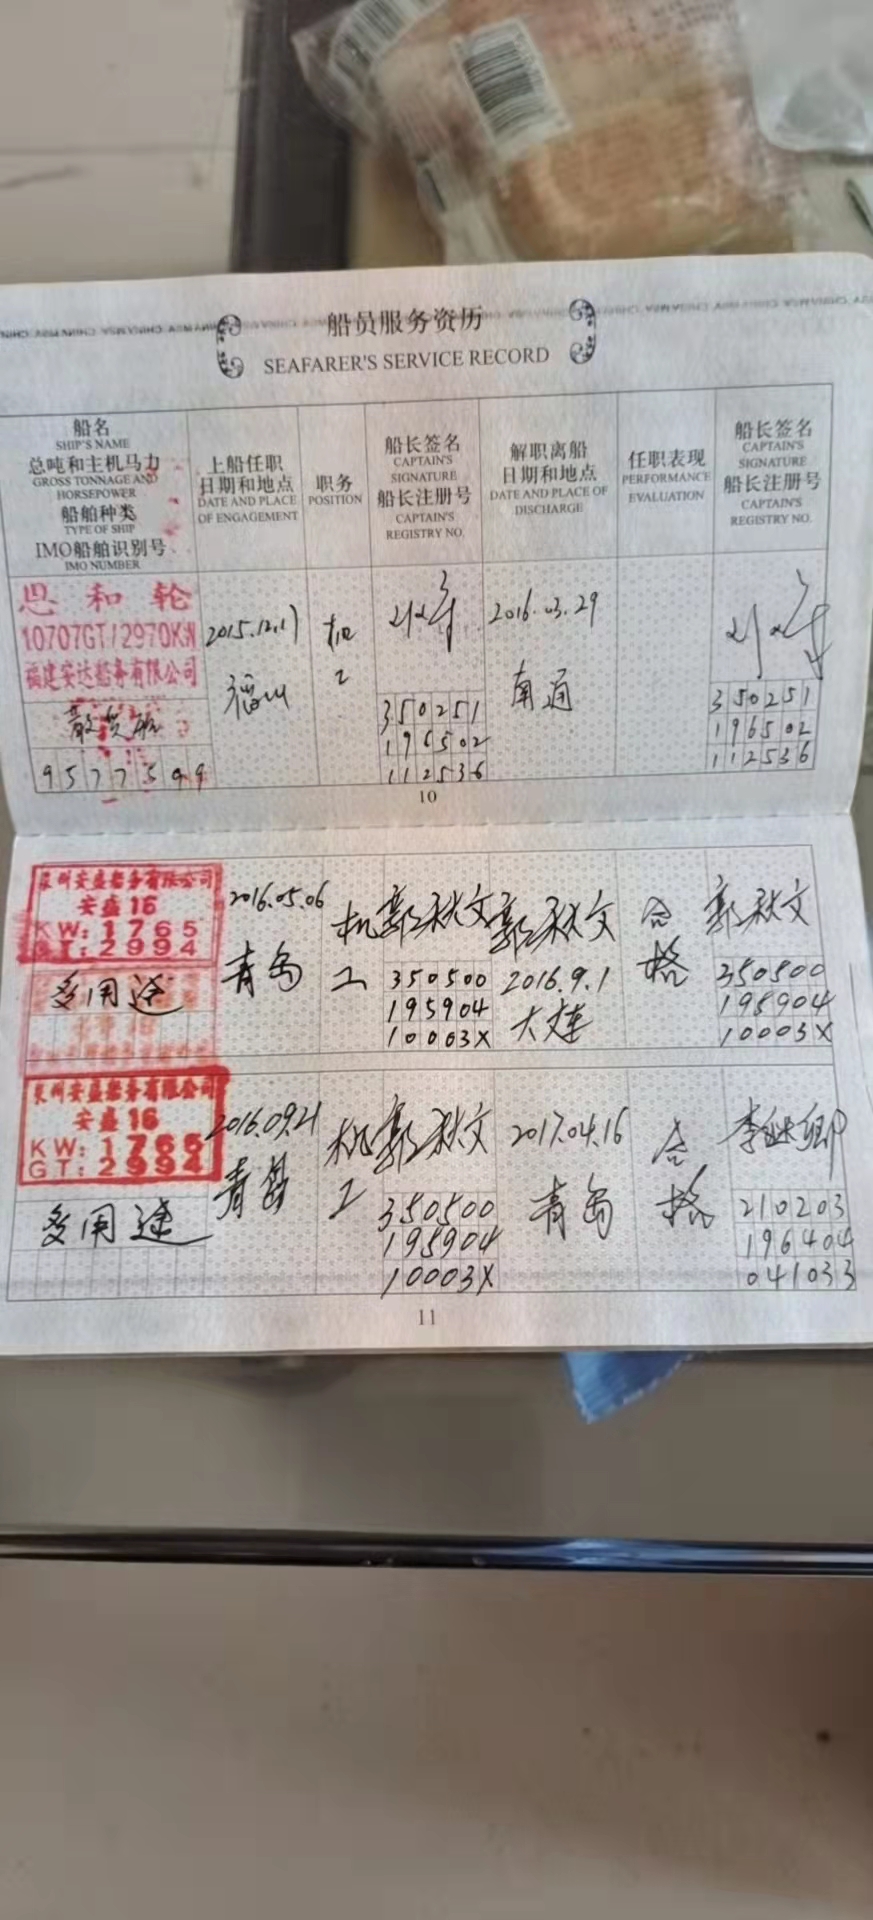 船员服务资历
SEAFARER'S SERVICE RECORD
船名
SHIP'S NAME
总吨和主机马力
GROSS TONNAGE AND
HORSEPOWER
船舶种类
TYPE OF SHIP
IMO船舶识别号
IMO NUMBER
上船任职
日期和地点
DATE AND PLACE
OF ENGAGEMENT
职务
POSITION
船长签名
CAPTAIN'S
SIGNATURE
船长注册号
CAPTAIN'S
REGISTRY NO.
解职离船
日期和地点
DATE AND PLACE OF
DISCHARGE
任职表现
PERFORMANCE
EVALUATION
船长签名
CAPTAIN'S
SIGNATURE
船长注册号
CAPTAIN'S
REGISTRY NO.
恩和轮
10707GT/2970KW
福建安达船务有限公司
散货船
9577599
2015.12.17
机
工
350251
196502
112536
2016.03.29
南通
350251
196502
112536
10
泉州安盛船务有限公司
安盛16
KW:1765
GT:2994
多用途
2016.05.06
青岛
机
工
郭秋文
350500
195904
10003X
郭秋文
2016.9.1
大连
合
格
郭秋文
350500
195904
10003X
泉州安盛船务有限公司
安盛16
KW:1765
GT:2994
多用途
2016.09.21
青岛
机
工
郭秋文
350500
195904
10003X
2017.04.16
青岛
合
格
李继卿
210203
196404
041033
11